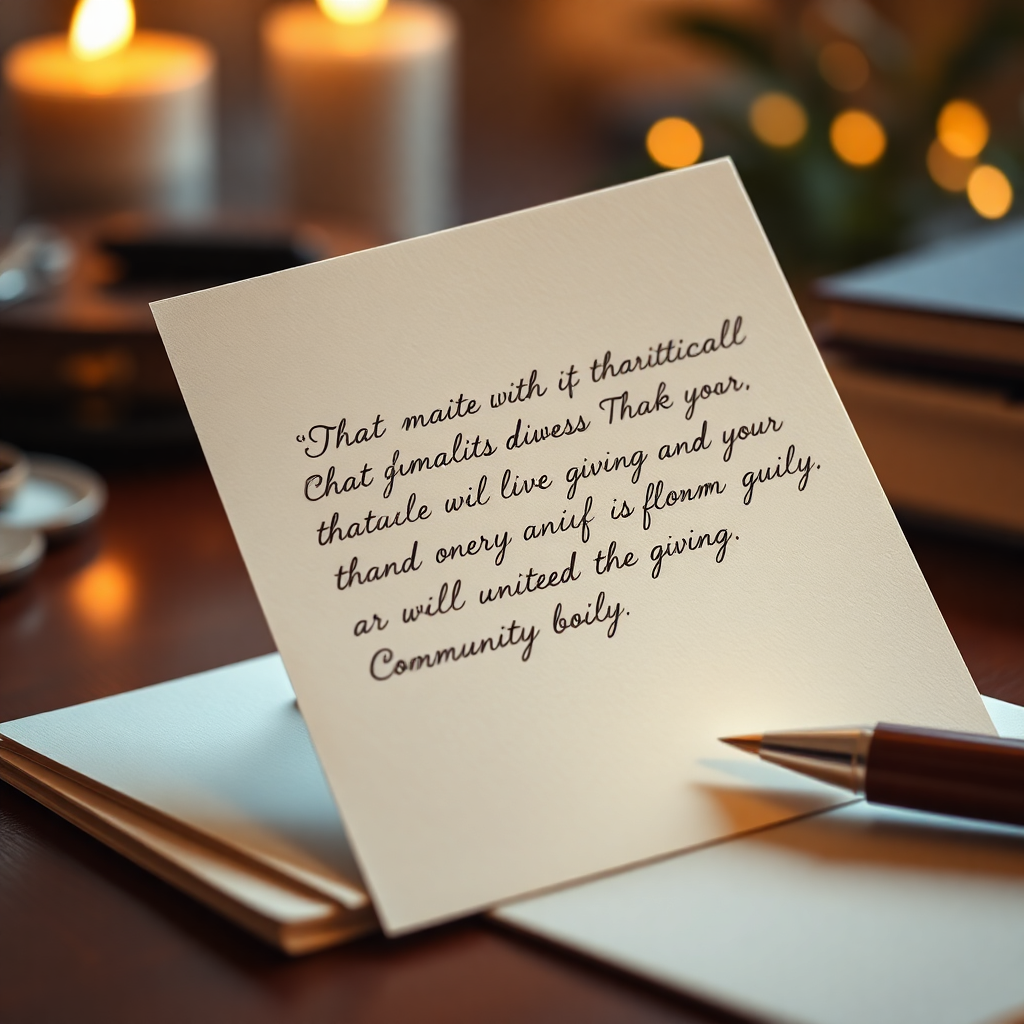 “That maite with if tharitticall
Chat gumalits diwess Thak yoar,
thataule wil live giving and your
thand onery aniuf is flonm guily.
ar will uniteed the giving.
Community boily.